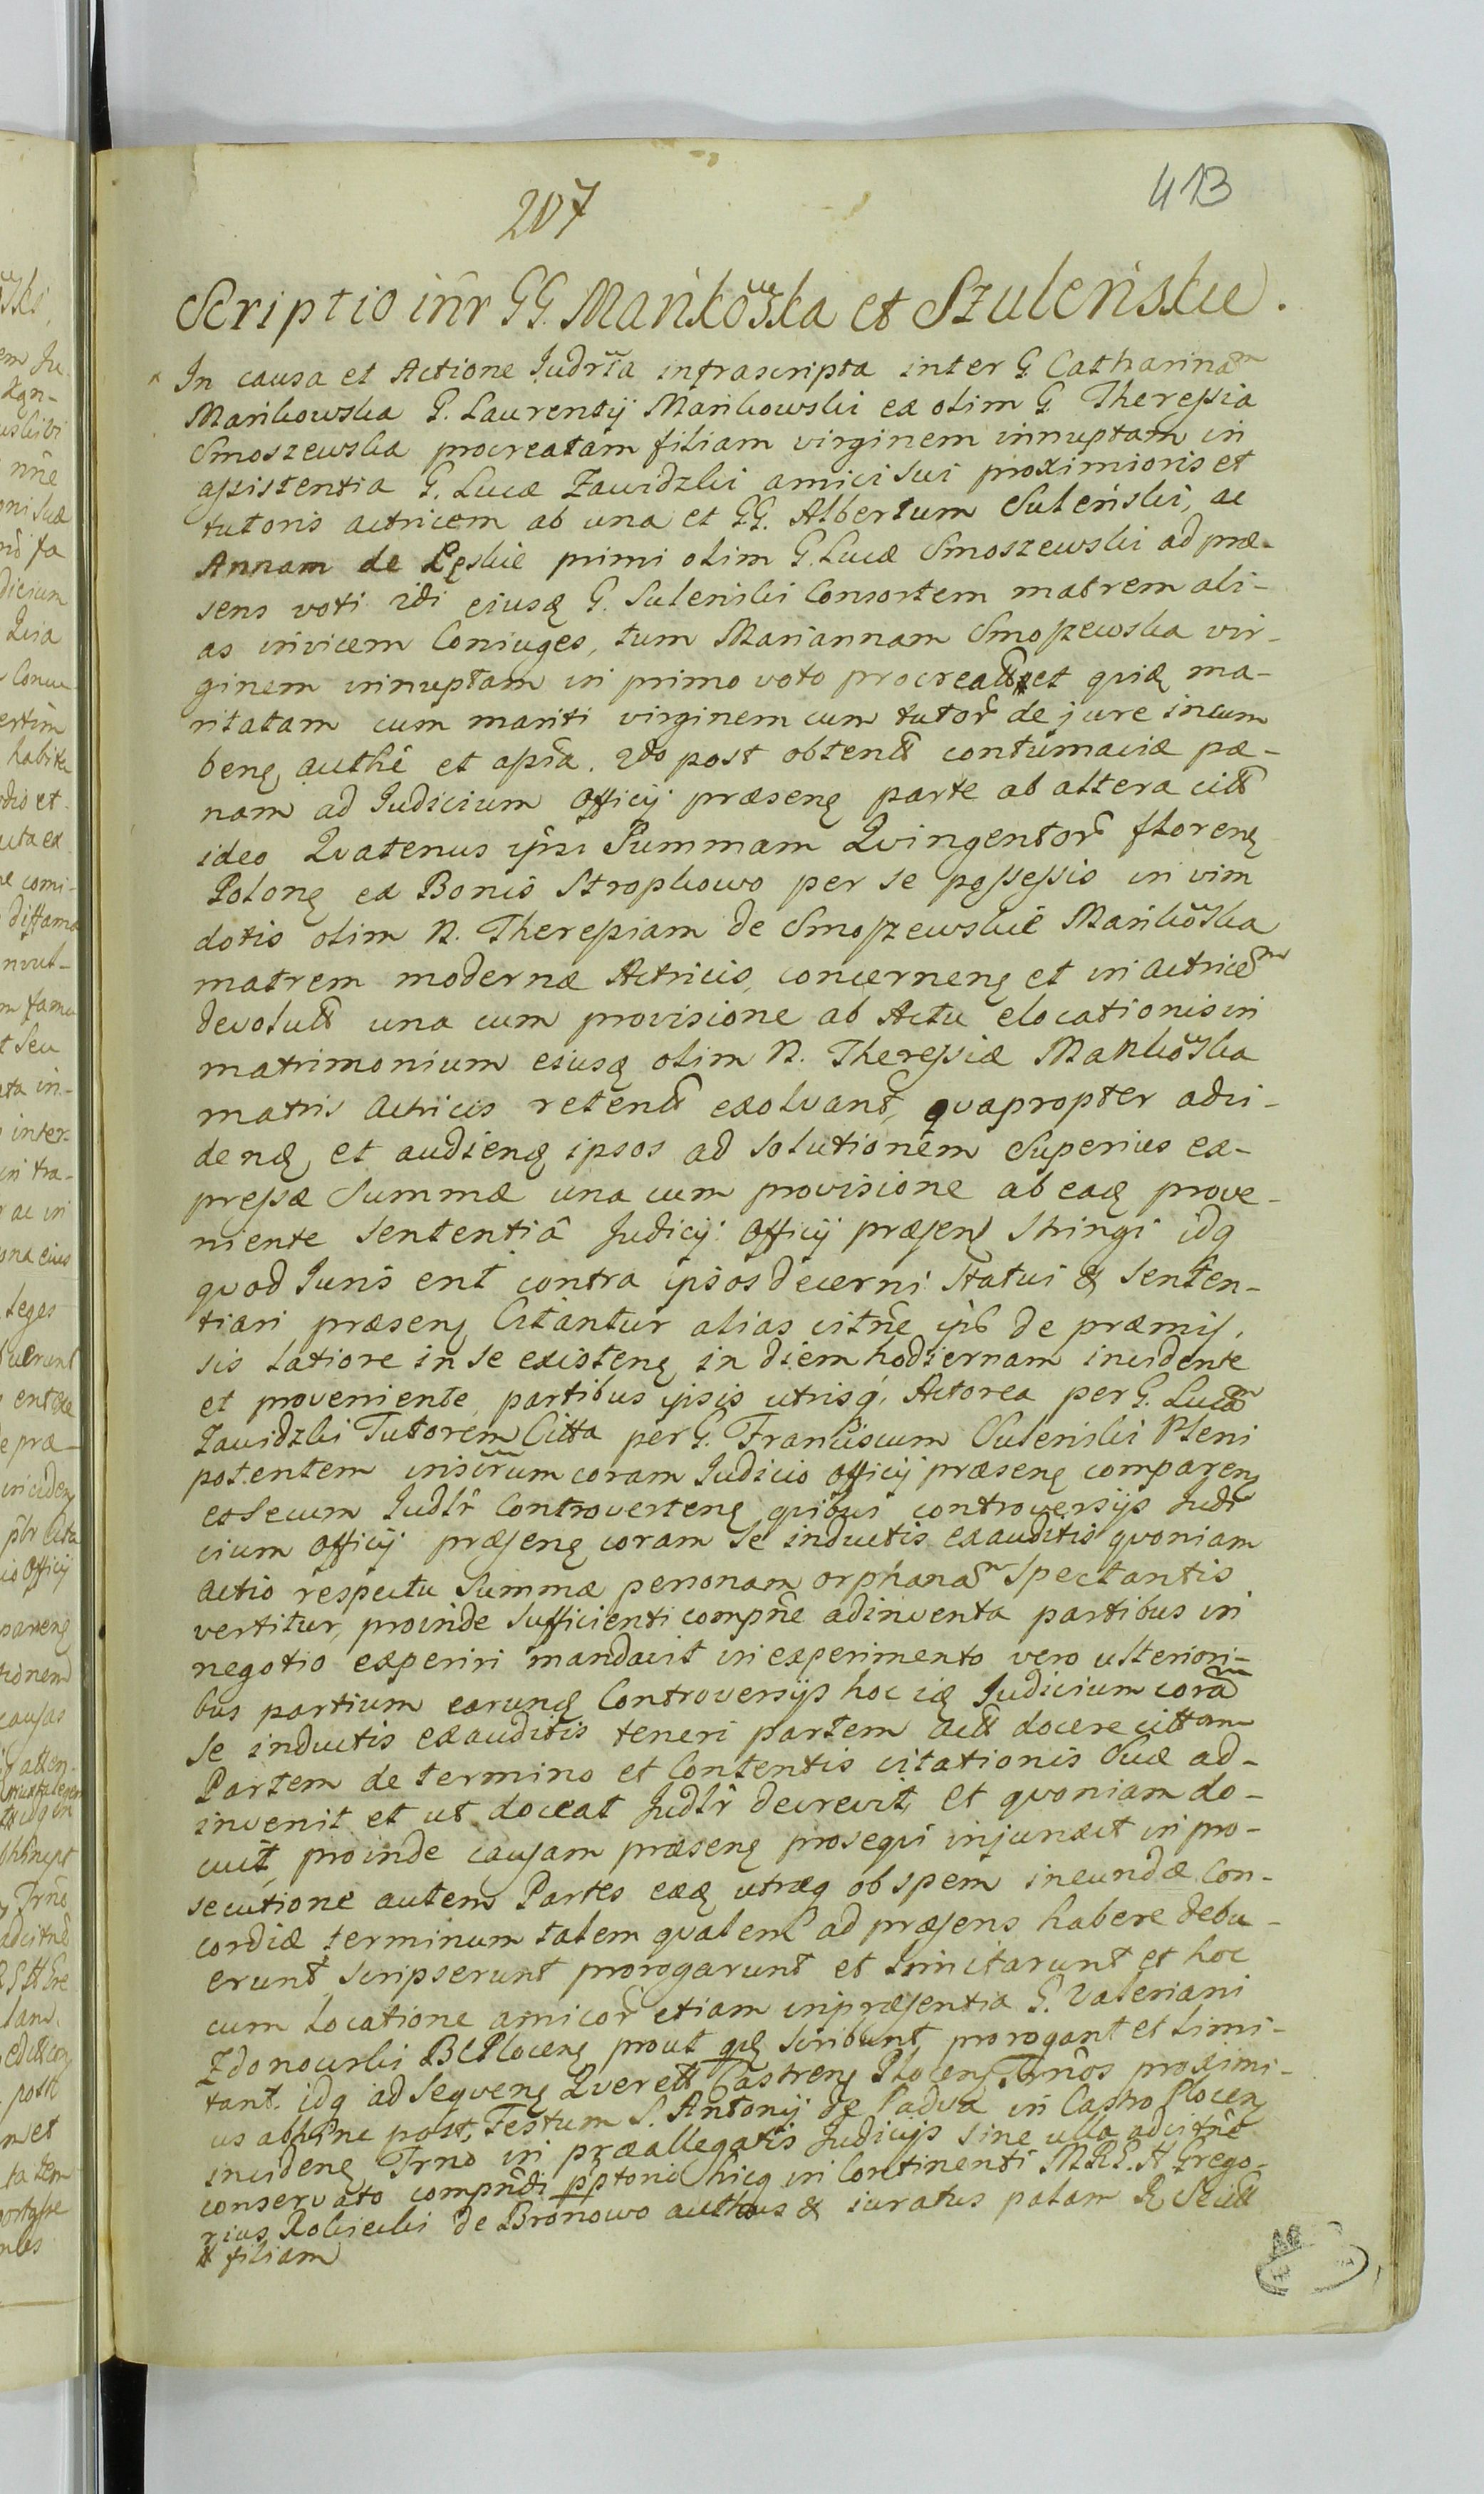 207
413
Scriptio inr GG. Mańkowska et Szuleńskie.
In causa et Actione Judria infrascripta inter G. Catharinam
Mańkowska G. Laurentij Mańkowski ex olim G. Theressia
Smoszewska procreatam filiam virginem innuptam in
assistentia G. Lucæ Zawidzki amici sui proximioris et
tutoris actricem ab una et GG. Albertum Suleński, ac
Annam de Łęskie primi olim G. Lucæ Smoszewski ad præ-
sens voti 2di ejusq G. Sulenski Consortem matrem ali-
as invicem Coniuges, tum Mariannam Smoszewska vir-
ginem innuptam in primo voto procreatt # et quidq ma-
ritatam cum mariti virginem cum tutor de jure incum
benq authê et assia. 2do post obtentt contumaciæ pæ-
nam ad Judicium Officij præsenq parte ab altera citt
ideo Qvatenus ipsi Summam Qvingentor florenq
Polonq ex Bonis Stropkowo per se possessis in vim
dotis olim N. Theressiam de Smoszewskie Mańkowska
matrem modernæ Actricis, concernenq et in actricem
devolutt una cum provisione ab Actu elocationis in
matrimonium ejusq olim N. Theressiæ Mańkowska
matris actricis retentt exolvant, qvapropter advi-
denq et audienq ipsos ad solutionem superius ex-
pressæ Summæ una cum provisione ab eaq prove-
niente sententiâ Judicij Officij præsenq stringi idq
qvod Juris erit contra ipsos decerni statui & senten-
tiari præsenq Citantur alias citne ipsa de præmis.
sis latiore in se existenq in diem hodiernam incidente
et proveniente, partibus ipsis utrisq, Actorea per G. Lucam
Zawidzki Tutorem Citta per G. Franciscum Sulenski Pleni
potentem inscrum coram Judicio Officij præsenq comparenq
et secum Judlr Controvertenq qvibus controversijs Judi
cium Officij præsenq coram se inductis exauditis qvoniam
actio respectu Summæ personam orphanam spectantis
vertitur, proinde sufficienti compne adinventa partibus in
negotio experiri mandavit in experimento vero ulteriori-
bus partium earunq Controversijs hoc iq Judicium coram
se inductis exauditis teneri partem actt docere cittam
Partem de termino et Contentis citationis suæ ad-
invenit et ut doceat Judlr decrevit, et qvoniam do-
cuit, proinde causam præsenq proseqvi injunxit in pro-
secutione autem Partes eæq utræq ob spem ineundæ Con-
cordiæ terminum talem qvalem ad præsens habere debu-
erunt, scripserunt prorogarunt et limitarunt et hoc
cum locatione amicor etiam in præsentia G. Valeriani
Zdonowski BCPlocenq prout qq scribunt, prorogant et limi-
tant idq ad seqvenq Qverett Castrenq Plocenq Trnos proximi-
us abhinc post Festum S. Antonij de Padua in Castro Plocenq
incidenq Trno in præallegatis Judicijs sine ulla adcitne
conservato compndi pptorio hicq in Continenti M.R.E. H Grego-
rius Rokicki de Bronowo authus & iuratus palam & Scitt
# filiam